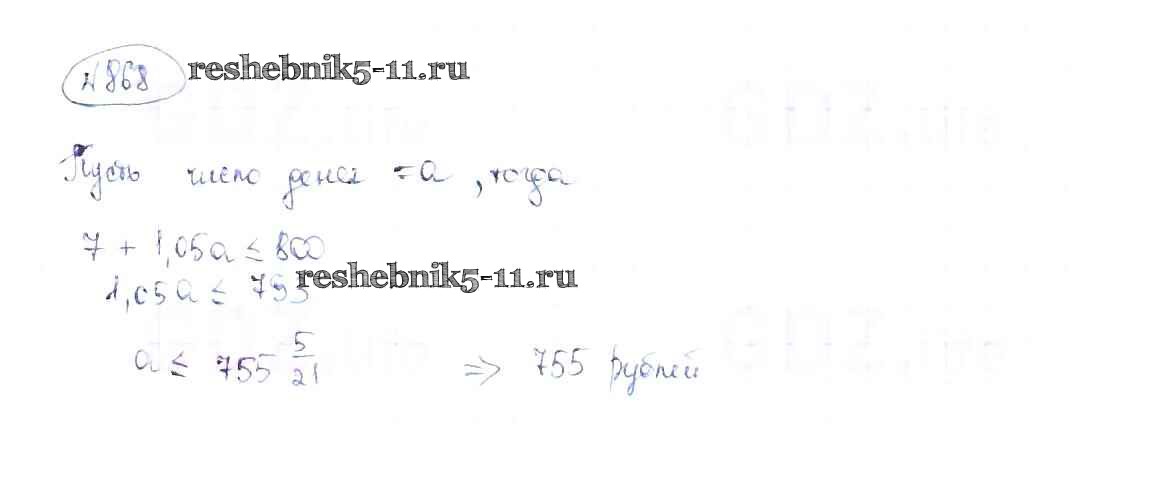 №868 reshebnik5-11.ru
Пусть число денег = a, тогда
7 + 1,05a ≤ 800
1,05a ≤ 793 reshebnik5-11.ru
a ≤ 755 5/21 => 755 рублей